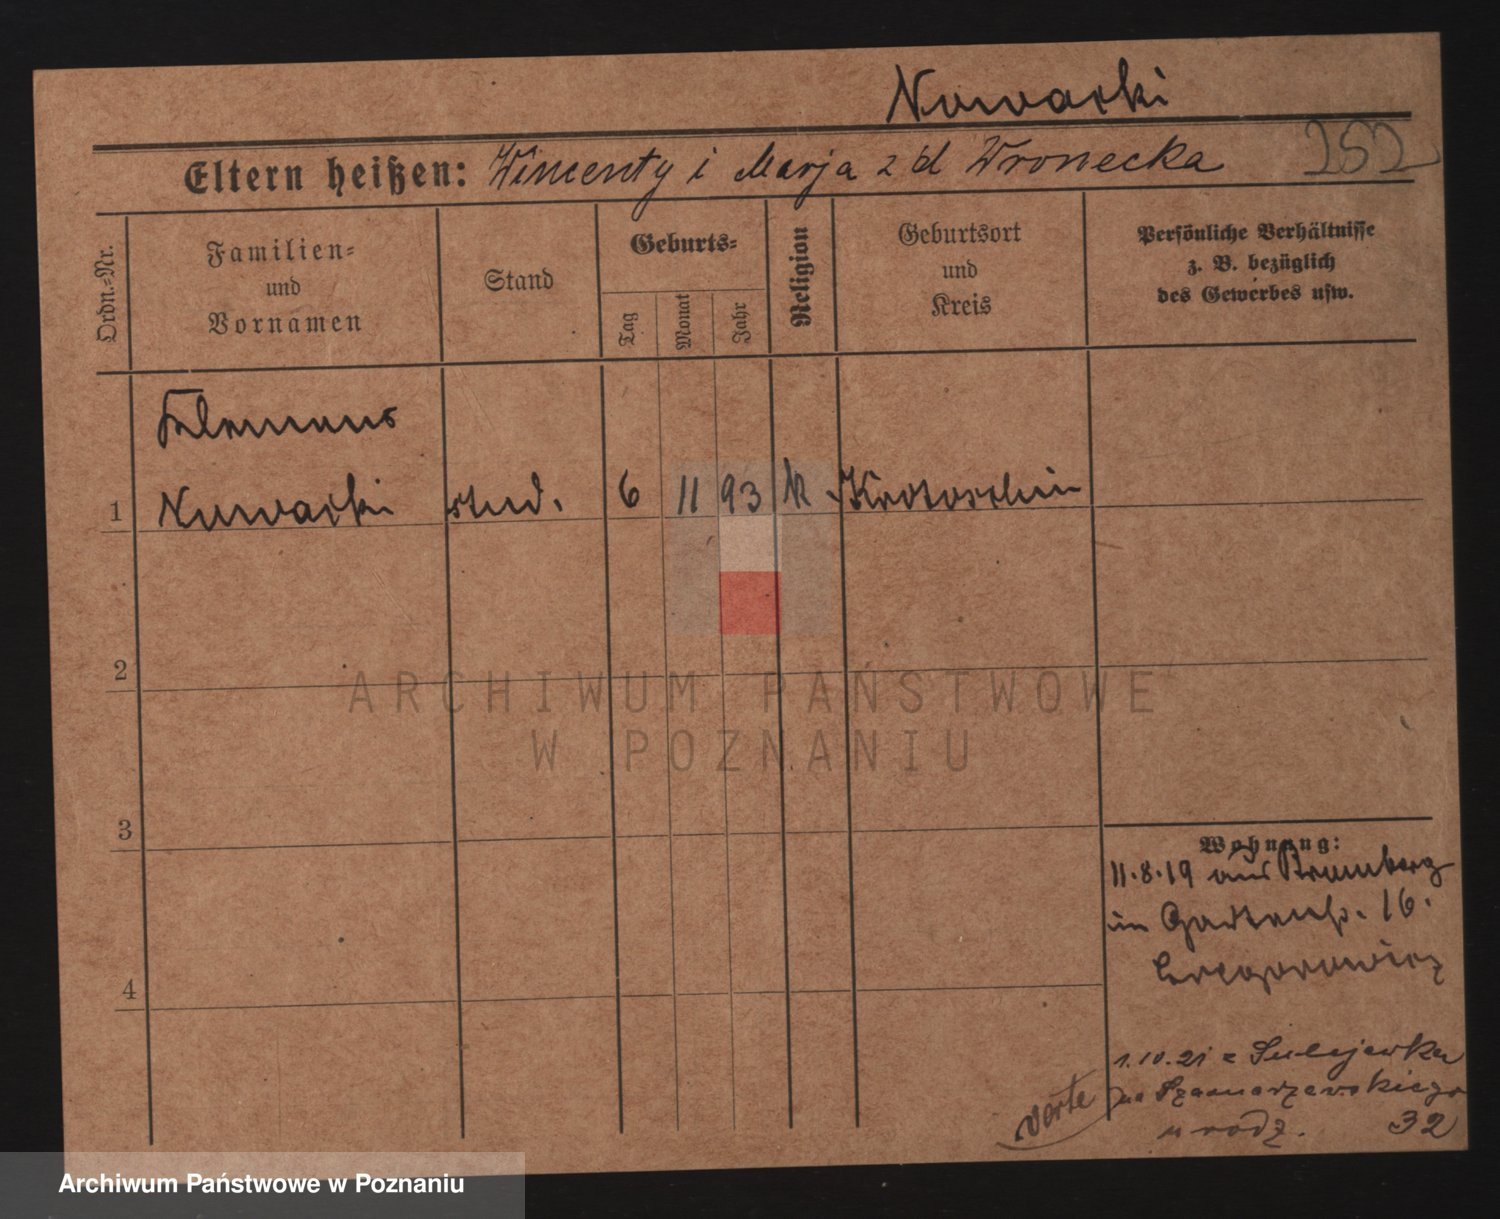 Nowacki
Eltern heißen: Wincenty i Marja z d Wronecka 252
Ordn.-Nr.
Familien-
und
Vornamen
Stand
Geburts-
Tag
Monat
Jahr
Religion
Geburtsort
und
Kreis
Persönliche Verhältnisse
z. B. bezüglich
des Gewerbes usw.
Klemens
1 Nowacki stud. 6 11 93 k Krotoschin
2
3
4
Wohnung:
11.8.19 aus Bromberg
in Gartenstr. 16.
1.10.21 z Sulejewka
na Szamarzewskiego
u rodz. 32
verte
ARCHIWUM PAŃSTWOWE
W POZNANIU
Archiwum Państwowe w Poznaniu